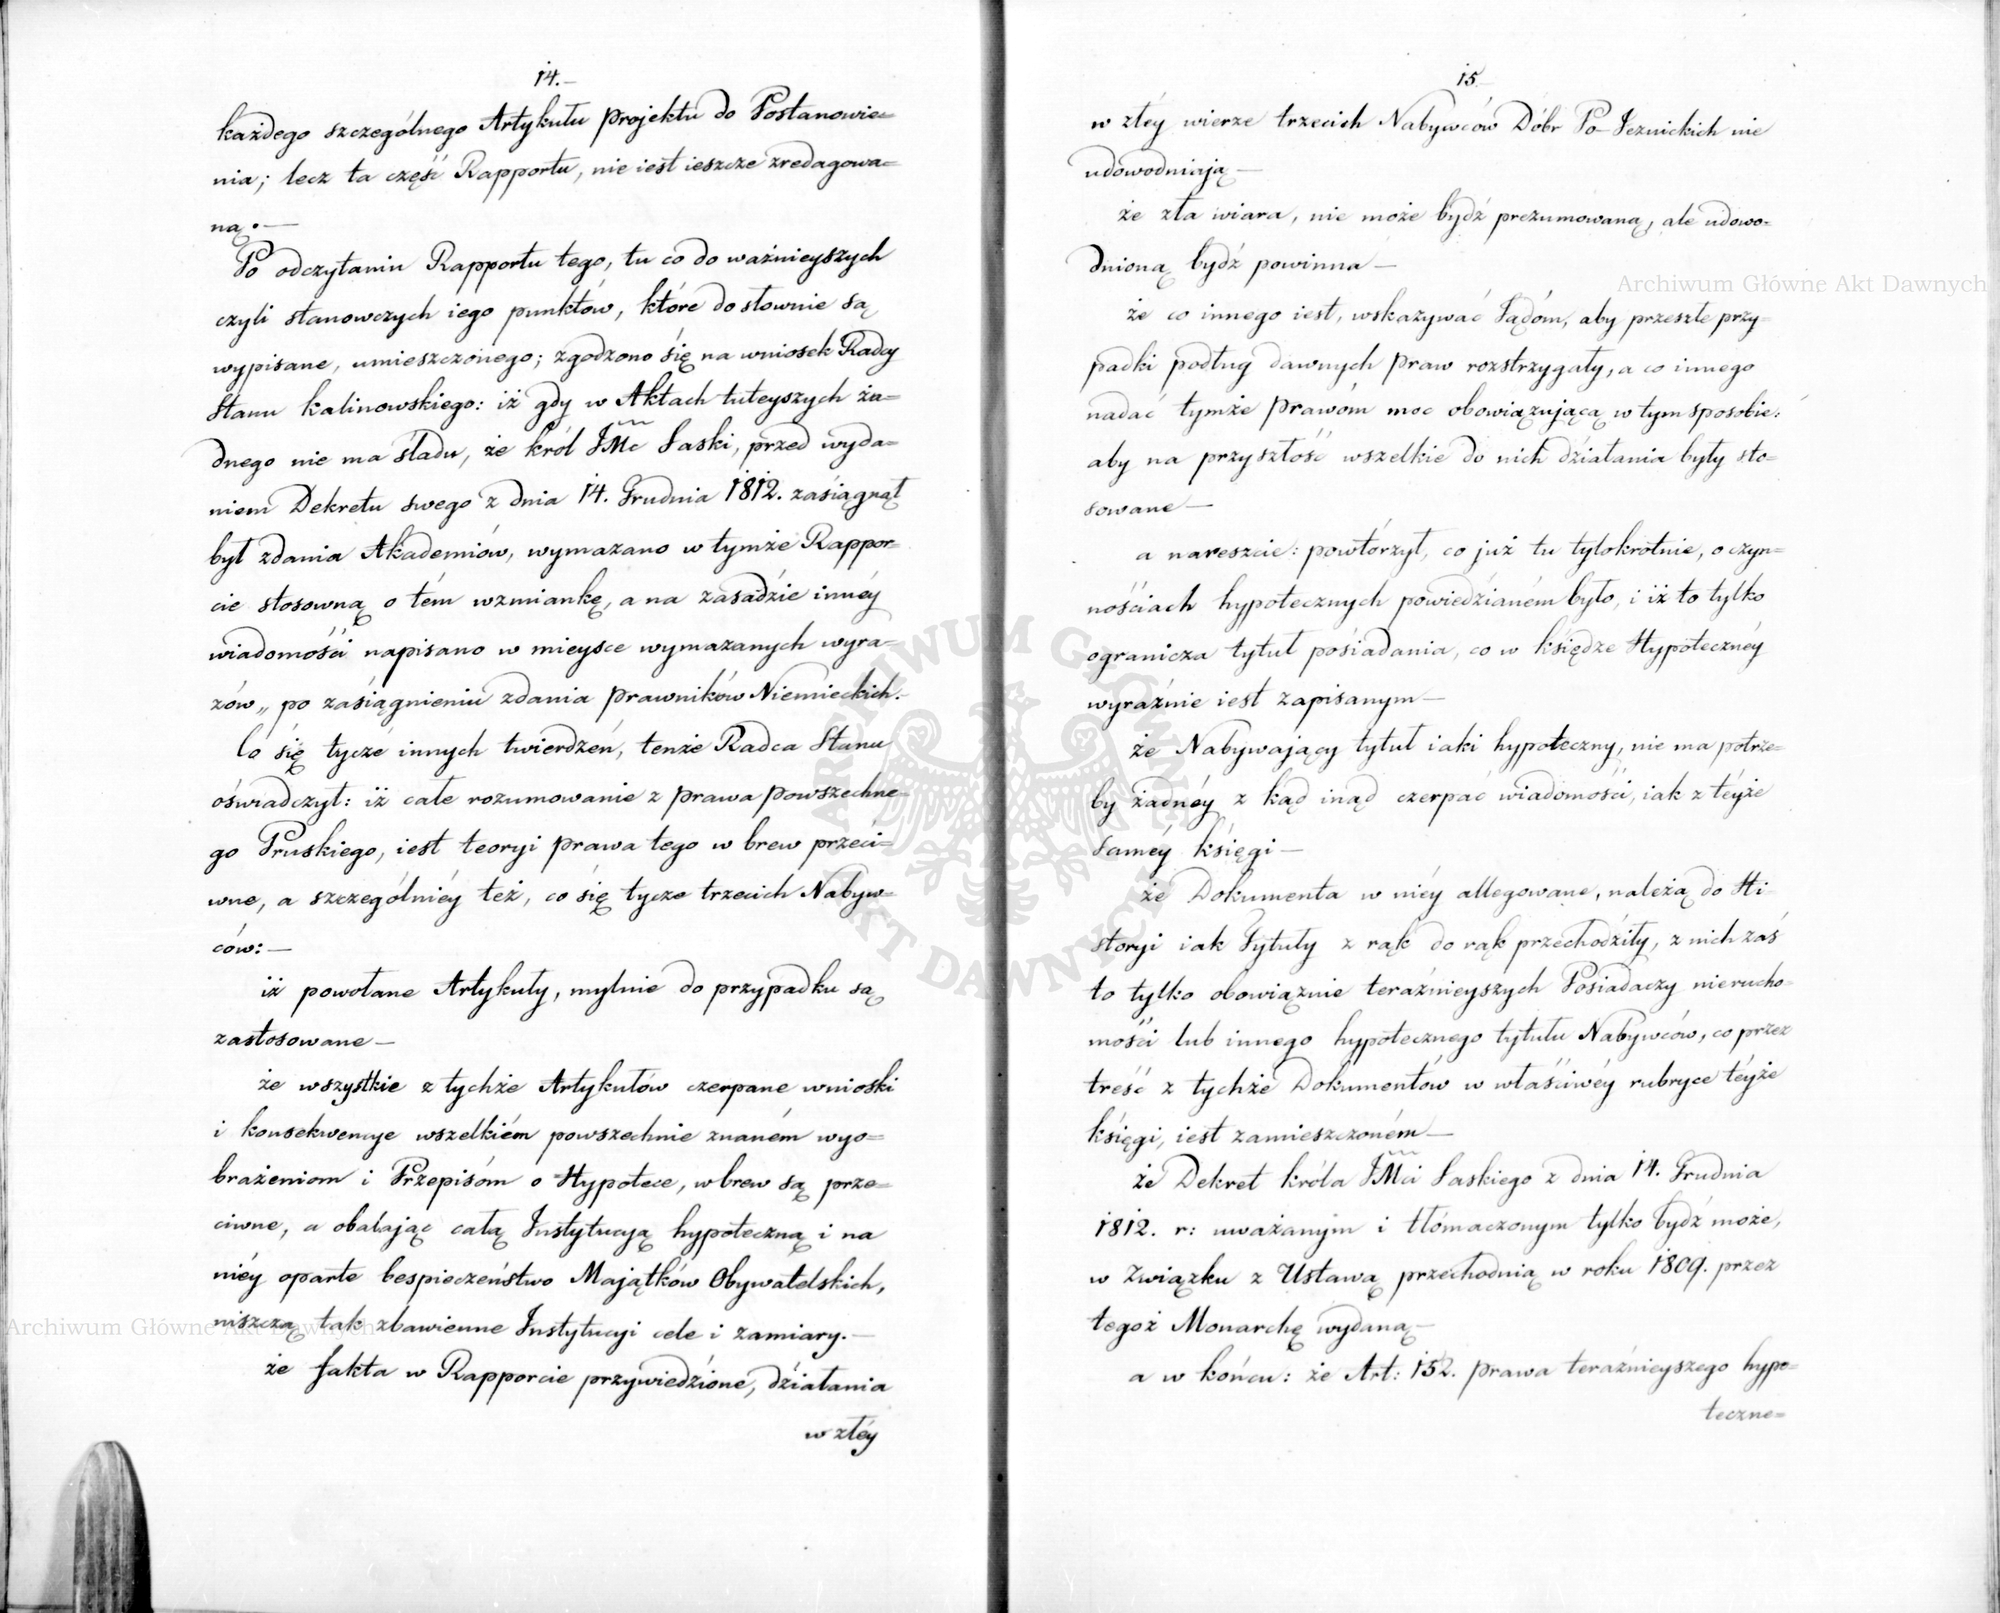 14.—
każdego szczególnego Artykułu projektu do Postanowie=
nia; lecz ta część Rapportu, nie iest ieszcze zredagowa=
ną.—
Po odczytaniu Rapportu tego, tu co do ważnieyszych
czyli stanowczych iego punktów, które dosłownie są
wypisane, umieszczonego; zgodzono się na wniosek Radcy
Stanu Kalinowskiego: iż gdy w Aktach tuteyszych ża=
dnego nie ma śladu, że król JMc Saski, przed wyda=
niem Dekretu swego z dnia 14. Grudnia 1812. zasiągnął
był zdania Akademiów, wymazano w tymże Rappor=
cie stosowną o tém wzmiankę, a na zasadzie innéy
wiadomości napisano w mieysce wymazanych wyra=
zów „ po zasiągnieniu zdania Prawników Niemieckich.—
Co się tycze innych twierdzeń, tenże Radca Stanu
oświadczył: iż całe rozumowanie z prawa powszechne=
go Pruskiego, iest teoryi prawa tego w brew przeci=
wne, a szczególniéy też, co się tycze trzecich Nabyw=
ców:—
iż powołane Artykuły, mylnie do przypadku są
zastosowane—
że wszystkie z tychże Artykułów czerpane wnioski
i konsekwencye wszelkiém powszechnie znaném wyo=
brażeniom i Przepisóm o Hypotece, w brew są prze=
ciwne, a obalając całą Instytucyą hypoteczną i na
niéy oparte bespieczeństwo Majątków Obywatelskich,
niszczą tak zbawienne Instytucyi cele i zamiary.—
że fakta w Rapporcie przywiedzione, działania
w złéy
15
w złéy wierze trzecich Nabywców Dóbr Po-Jeznickich nie
udowodniają—
że zła wiara, nie może bydź prezumowaną, ale udowo=
dnioną bydź powinna—
że co innego iest, wskazywać Sądóm, aby przeszłe przy=
padki podług dawnych Praw rozstrzygały, a co innego
nadać tymże Prawóm moc obowiązującą w tym sposobie:
aby na przyszłość wszelkie do nich działania były sto=
sowane—
a nareszcie: powtórzył, co już tu tylokrotnie, o czyn=
nościach hypotecznych powiedzianém było, i iż to tylko
ogranicza tytuł posiadania, co w księdze Hypotecznéy
wyraźnie iest zapisanym—
że Nabywający tytuł iaki hypoteczny, nie ma potrze=
by żadnéy z kąd inąd czerpać wiadomości, iak z téyże
saméy księgi—
że Dokumenta w niéy allegowane, należą do Hi=
storyi iak Tytuły z rąk do rąk przechodziły, z nich zaś
to tylko obowiąznie teraźnieyszych Posiadaczy nierucho=
mości lub innego hypotecznego tytułu Nabywców, co przez
treść z tychże Dokumentów w właściwéy rubryce téyże
księgi, iest zamieszczoném—
że Dekret króla JMci Saskiego z dnia 14. Grudnia
1812. r: uważanym i tłómaczonym tylko bydź może,
w związku z Ustawą przechodnią w roku 1809. przez
tegoż Monarchę wydaną—
a w końcu: że Art: 152. prawa teraźnieyszego hypo=
teczne=
Archiwum Główne Akt Dawnych
Archiwum Główne Akt Dawnych
ARCHIWUM GŁÓWNE
AKT DAWNYCH